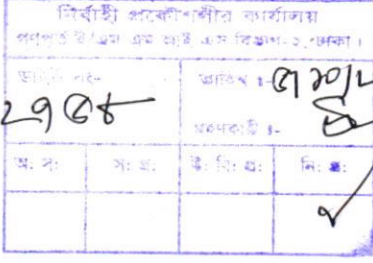 নির্বাহী প্রকৌশলীর কার্যালয়
গণপূর্ত ই/এম এম আই এস বিভাগ-২, ঢাকা।
ডাইরী নং- তারিখ :-
২৭৫৪
গ্রহণকারী :-
অ: স: স: প্র: উ: বি: প্র: নি: প্র: